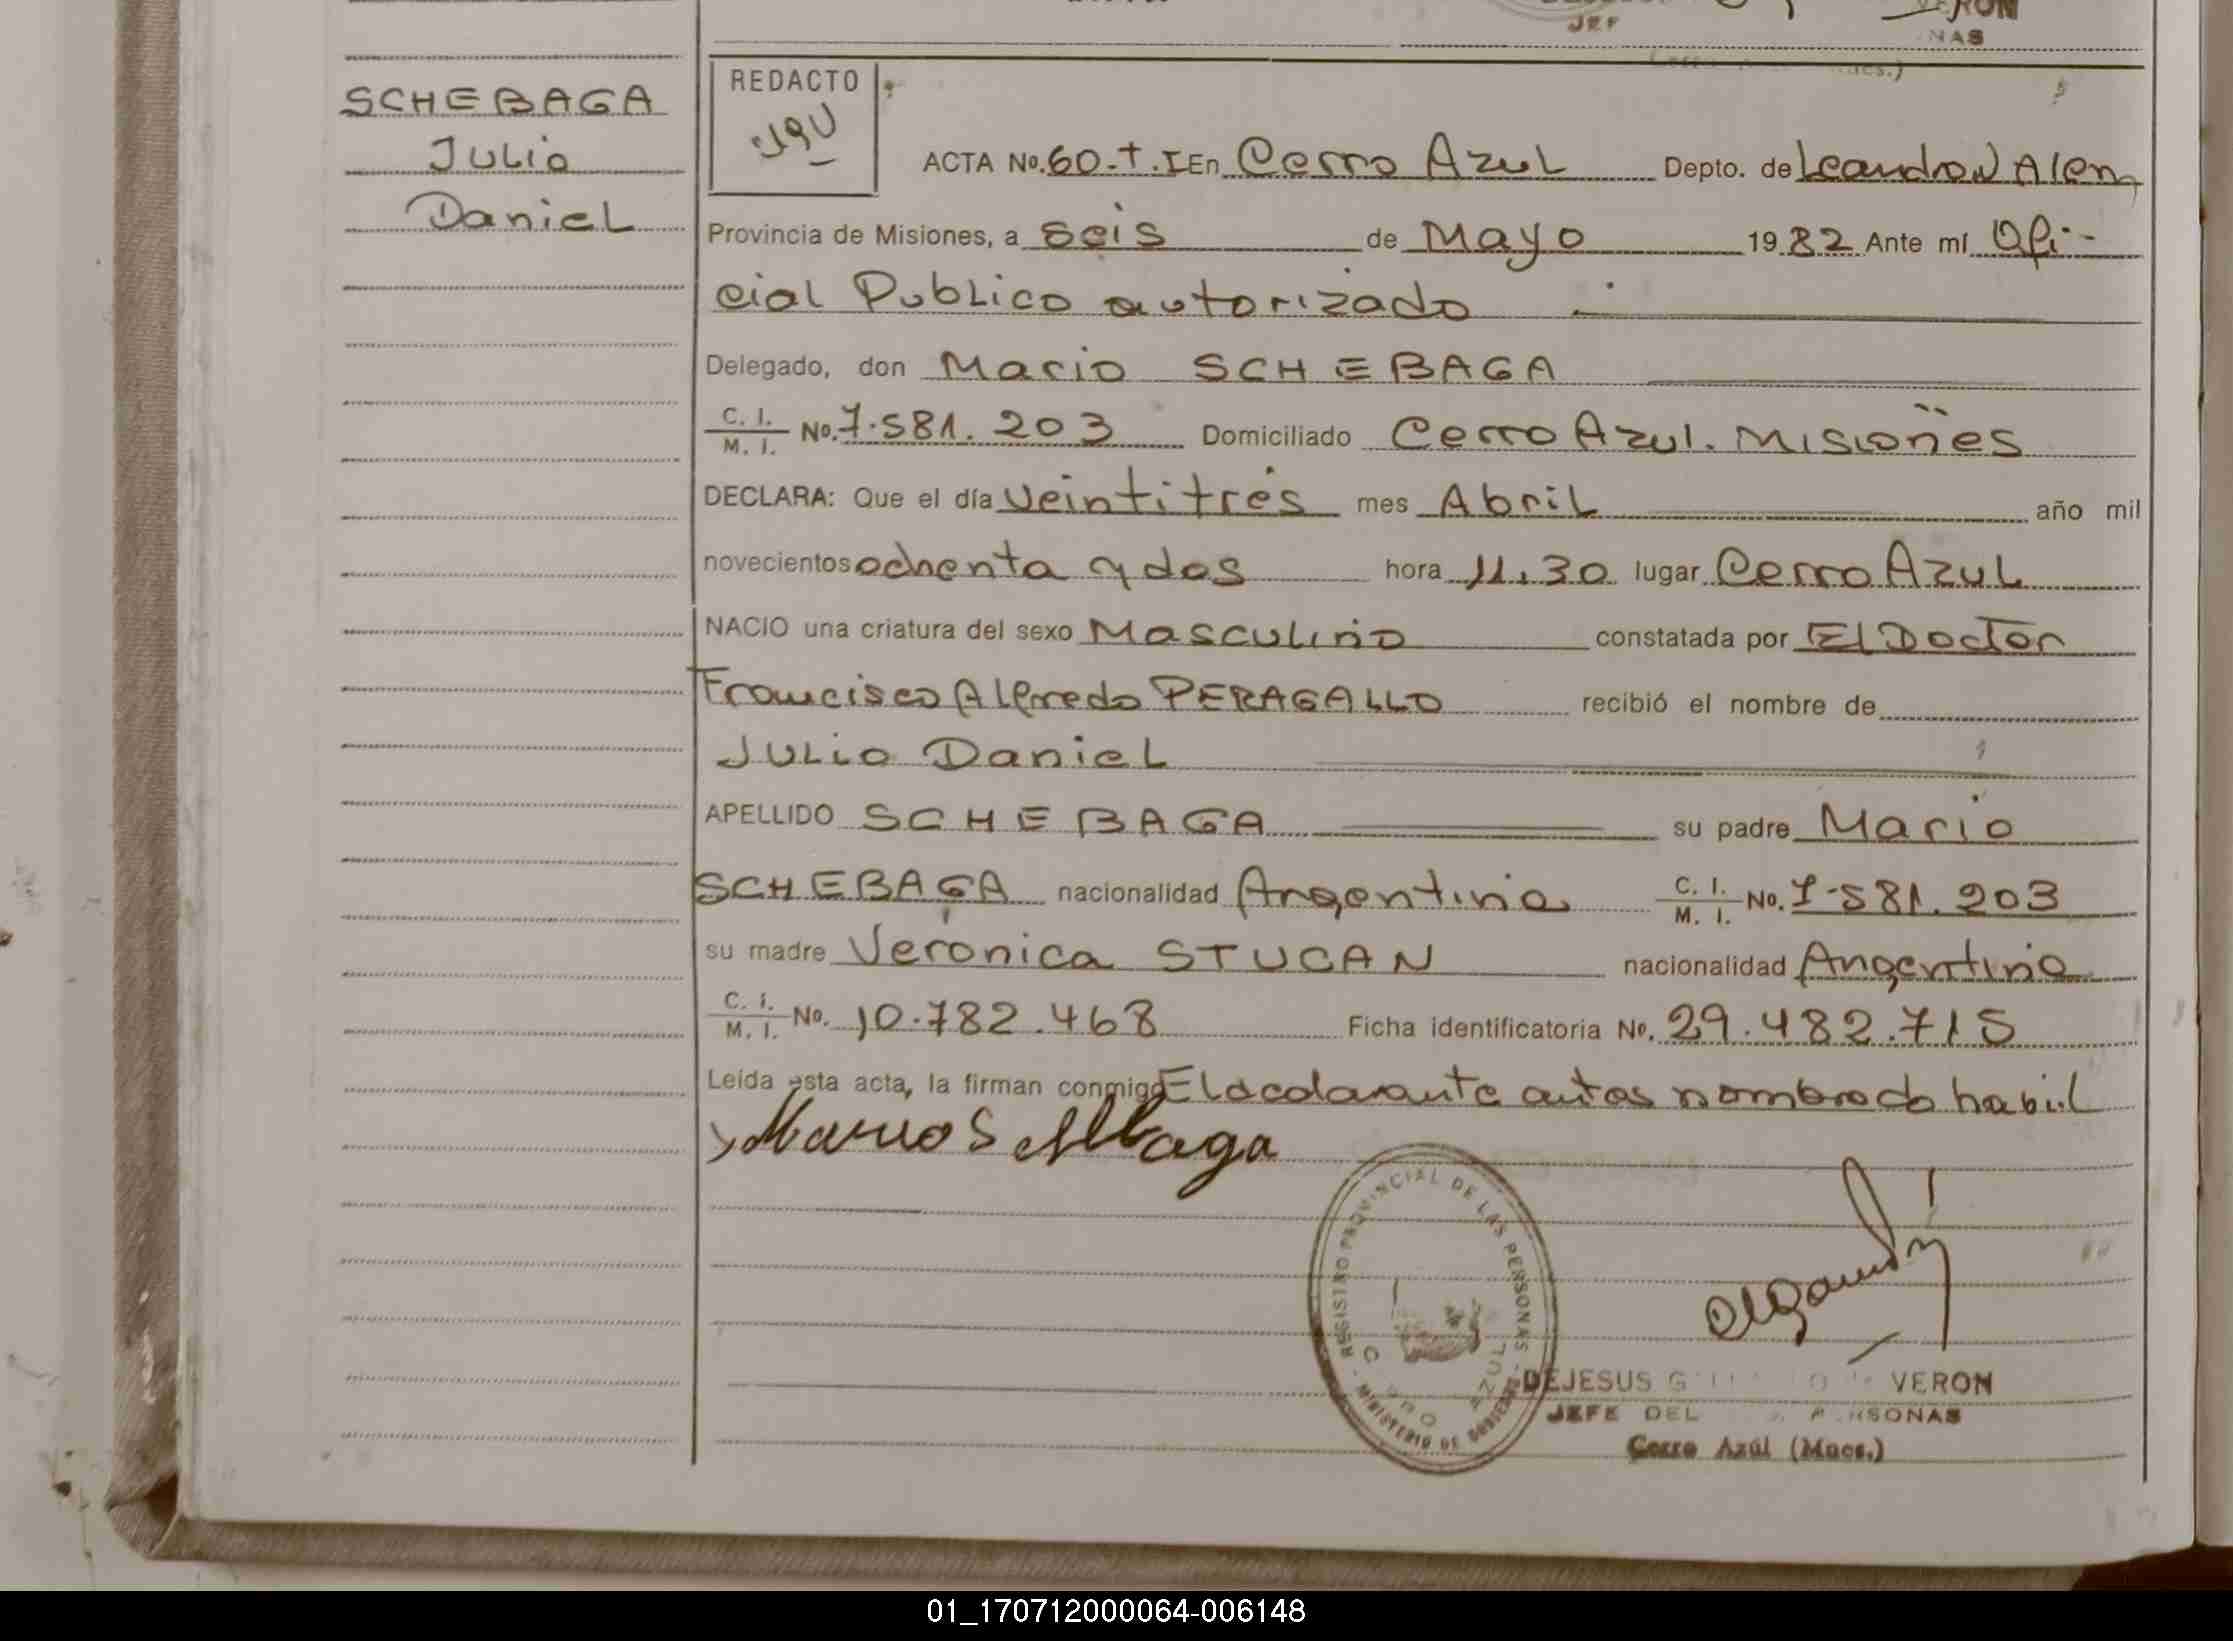 JEF
VERON
NAS
SCHEBAGA
Julio
Daniel
REDACTO
ACTA No. 60-T.I En Cerro Azul Depto. de Leandro N Alem
Provincia de Misiones, a seis de Mayo 1982 Ante mí Ofi-
cial Publico autorizado
Delegado, don Mario SCHEBAGA
C. I.
M. I. No. 7.581.203 Domiciliado Cerro Azul. Misiones
DECLARA: Que el día veintitrés mes Abril año mil
novecientos ochenta y dos hora 11.30 lugar Cerro Azul
NACIO una criatura del sexo Masculino constatada por El Doctor
Francisco Alfredo PERAGALLO recibió el nombre de
Julio Daniel
APELLIDO SCHEBAGA su padre Mario
SCHEBAGA nacionalidad Argentina C. I. M. I. No. 7.581.203
su madre Veronica STUCAN nacionalidad Argentina
C. I.
M. I. No. 10.782.468 Ficha identificatoria No. 29.482.715
Leída esta acta, la firman conmigo El declarante antes nombrado habil
Mario Schebaga
REGISTRO PROVINCIAL DE LAS PERSONAS - MINISTERIO DE GOBIERNO
AZUL
DEJESUS VERON
JEFE DEL PERSONAS
Cerro Azúl (Mnes.)
01_170712000064-006148